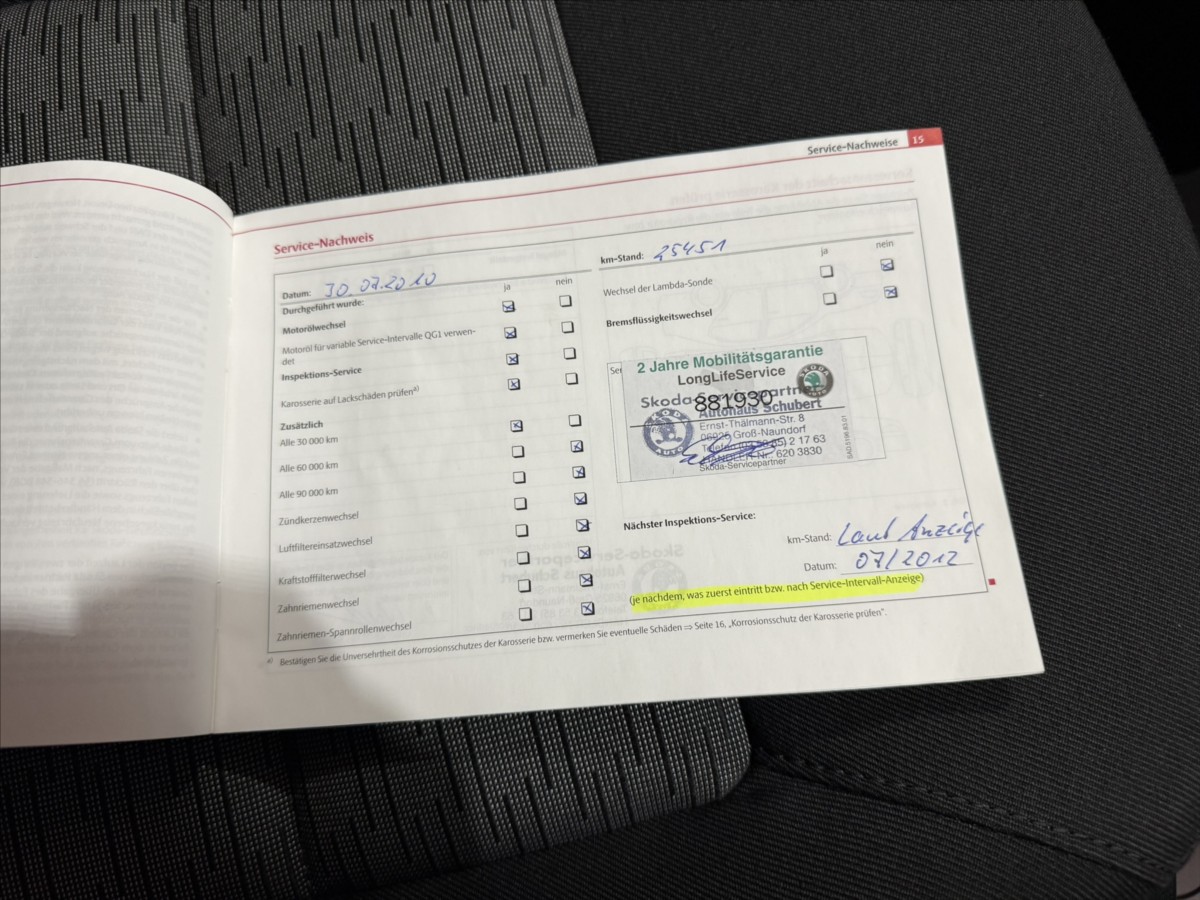 Service-Nachweise 15
Service-Nachweis
Datum: 30.07.2010
ja nein
Durchgeführt wurde:
Motorölwechsel
Motoröl für variable Service-Intervalle QG1 verwen-
det
Inspektions-Service
Karosserie auf Lackschäden prüfen a)
Zusätzlich
Alle 30 000 km
Alle 60 000 km
Alle 90 000 km
Zündkerzenwechsel
Luftfiltereinsatzwechsel
Kraftstofffilterwechsel
Zahnriemenwechsel
Zahnriemen-Spannrollenwechsel
km-Stand: 25451
ja nein
Wechsel der Lambda-Sonde
Bremsflüssigkeitswechsel
2 Jahre Mobilitätsgarantie
LongLifeService
Skoda-Servicepartner
881930
Autohaus Schubert
Ernst-Thälmann-Str. 8
Groß-Naundorf
2 17 63
620 3830
Skoda-Servicepartner
Nächster Inspektions-Service:
km-Stand: Laut Anzeige
Datum: 07/2012
(je nachdem, was zuerst eintritt bzw. nach Service-Intervall-Anzeige)
a) Bestätigen Sie die Unversehrtheit des Korrosionsschutzes der Karosserie bzw. vermerken Sie eventuelle Schäden ⇒ Seite 16, „Korrosionsschutz der Karosserie prüfen".